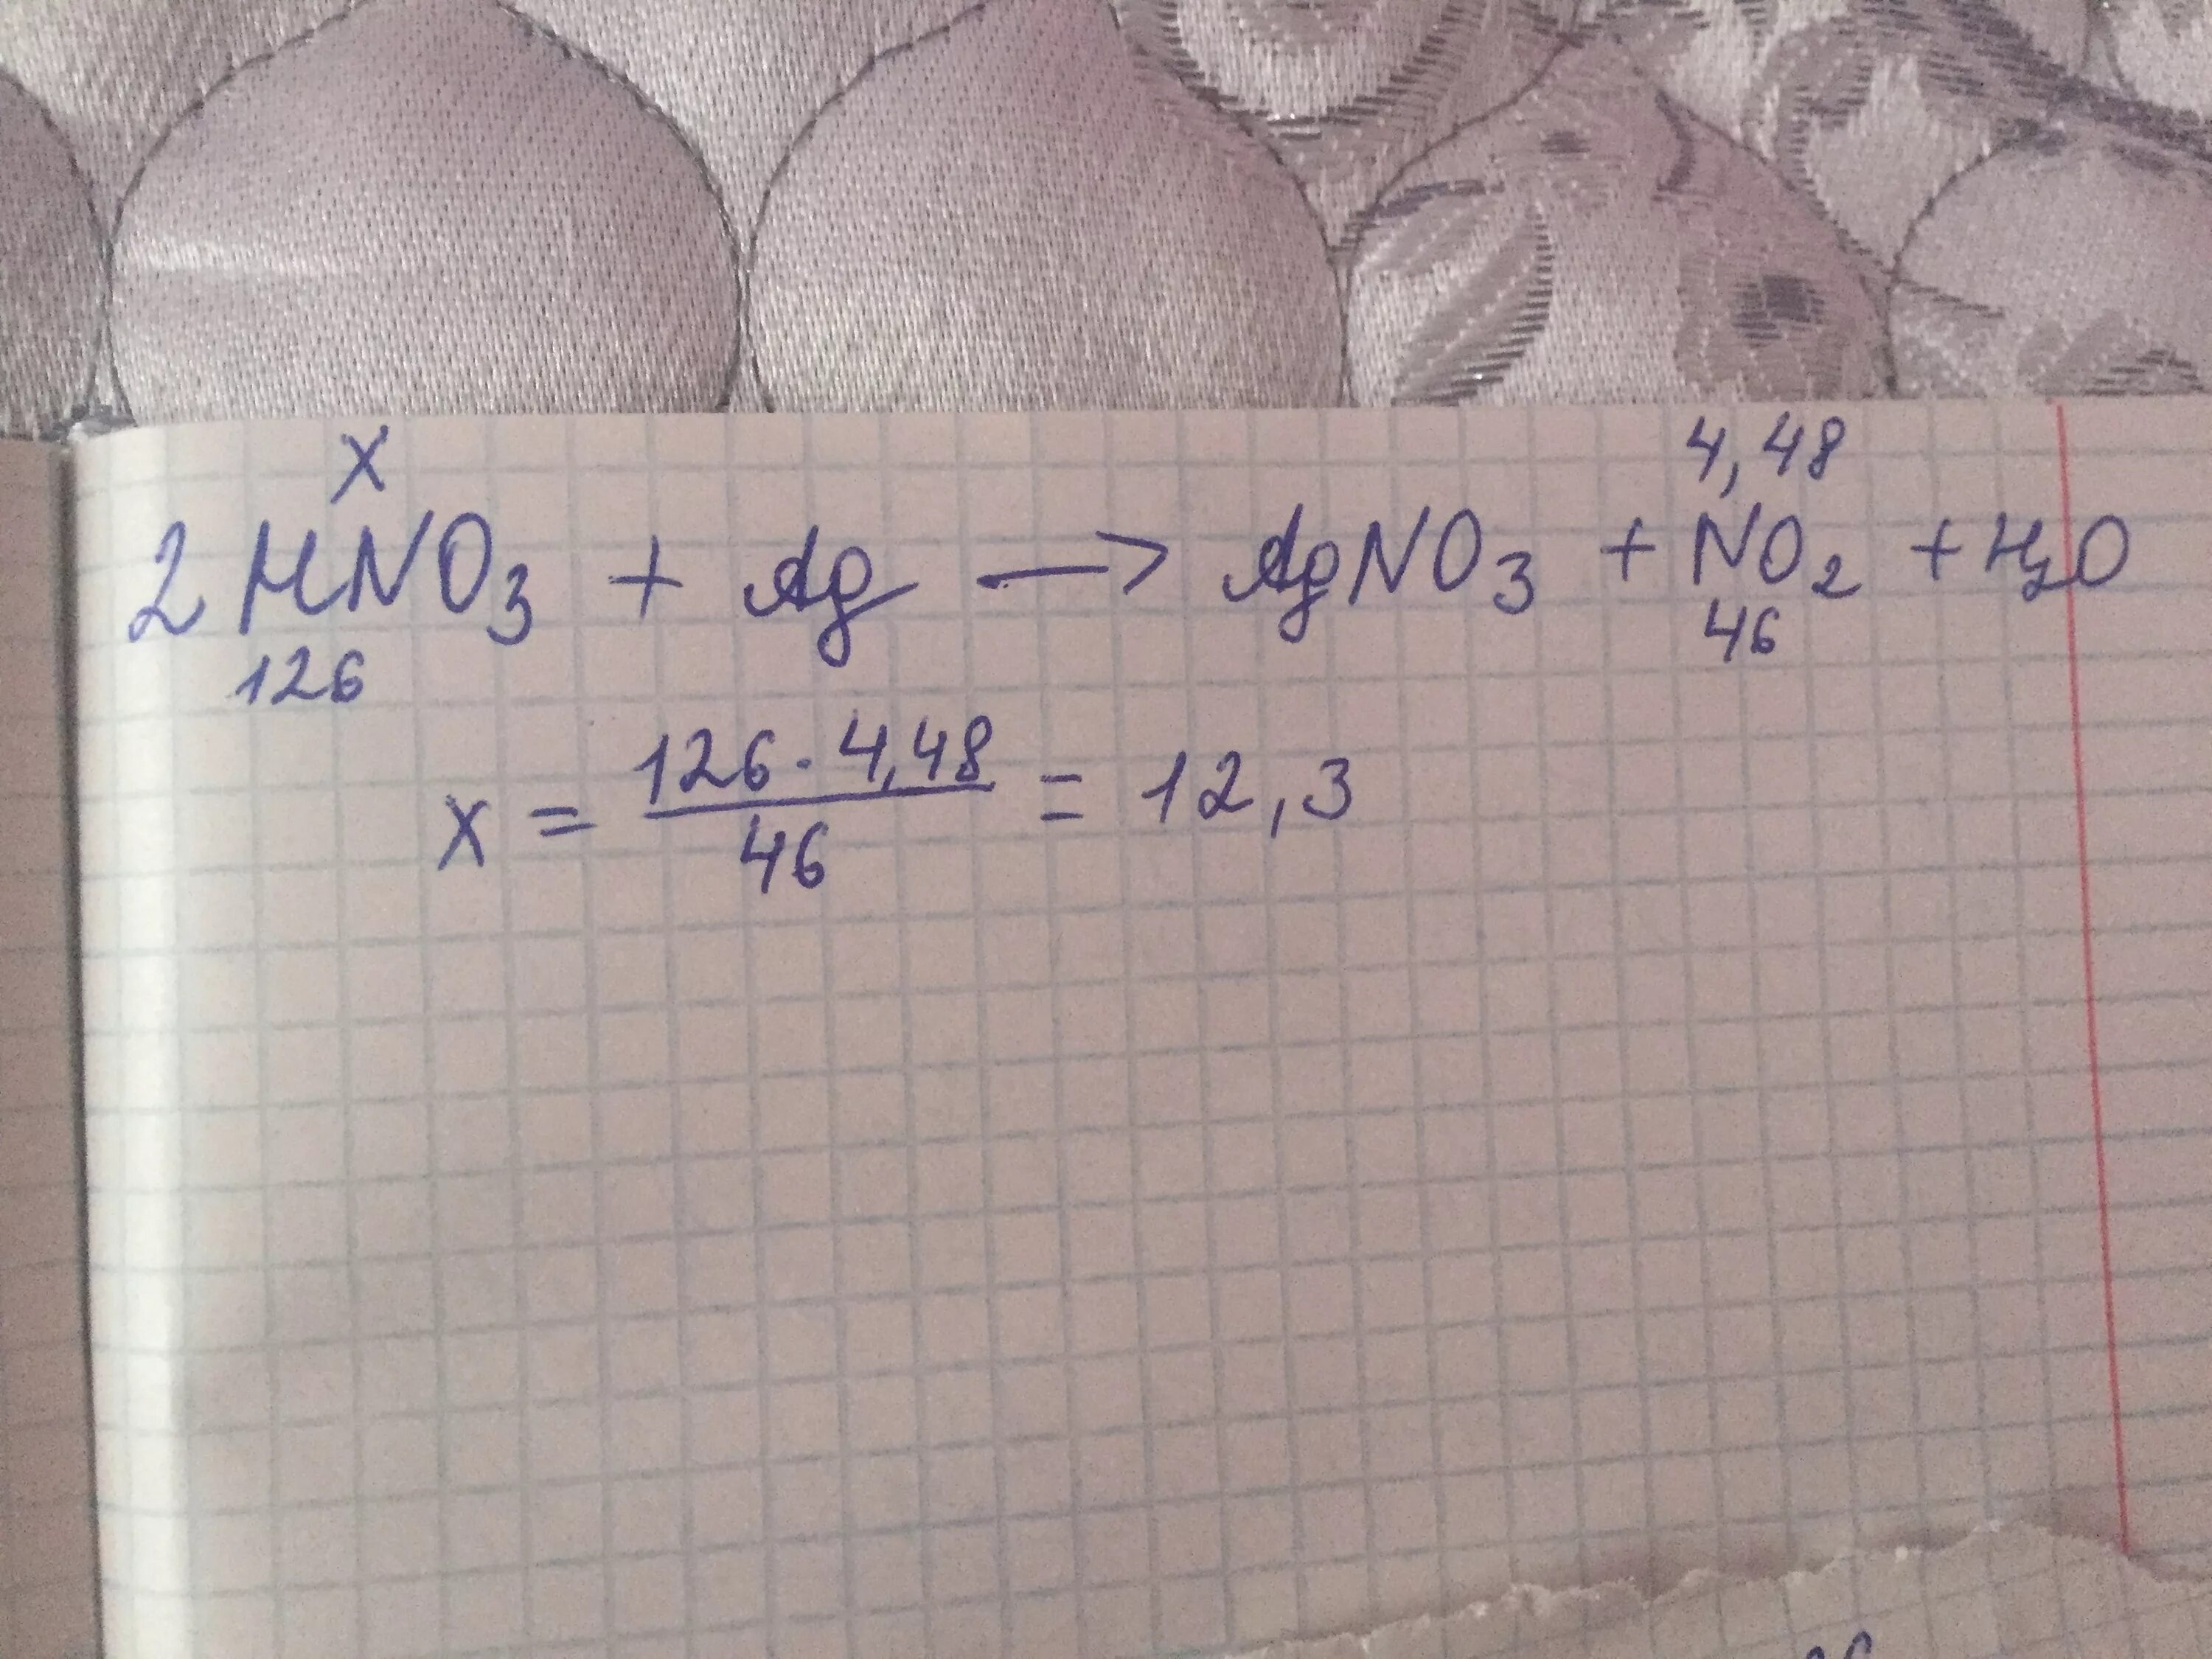 x 4,48
2HNO₃ + Ag → AgNO₃ + NO₂ + H₂O
126 46
x = 126 · 4,48 / 46 = 12,3